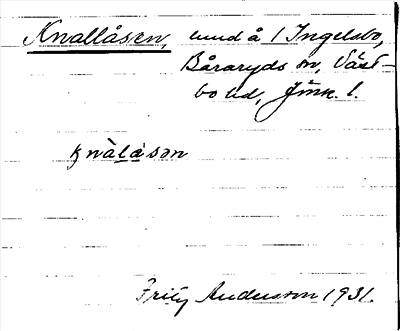 Knallåsen, und å / Ingelsbo,
Båraryds sn, Väst-
bo hd, Jönk. l.
knàlåsən
Fritz Andersson 1931.